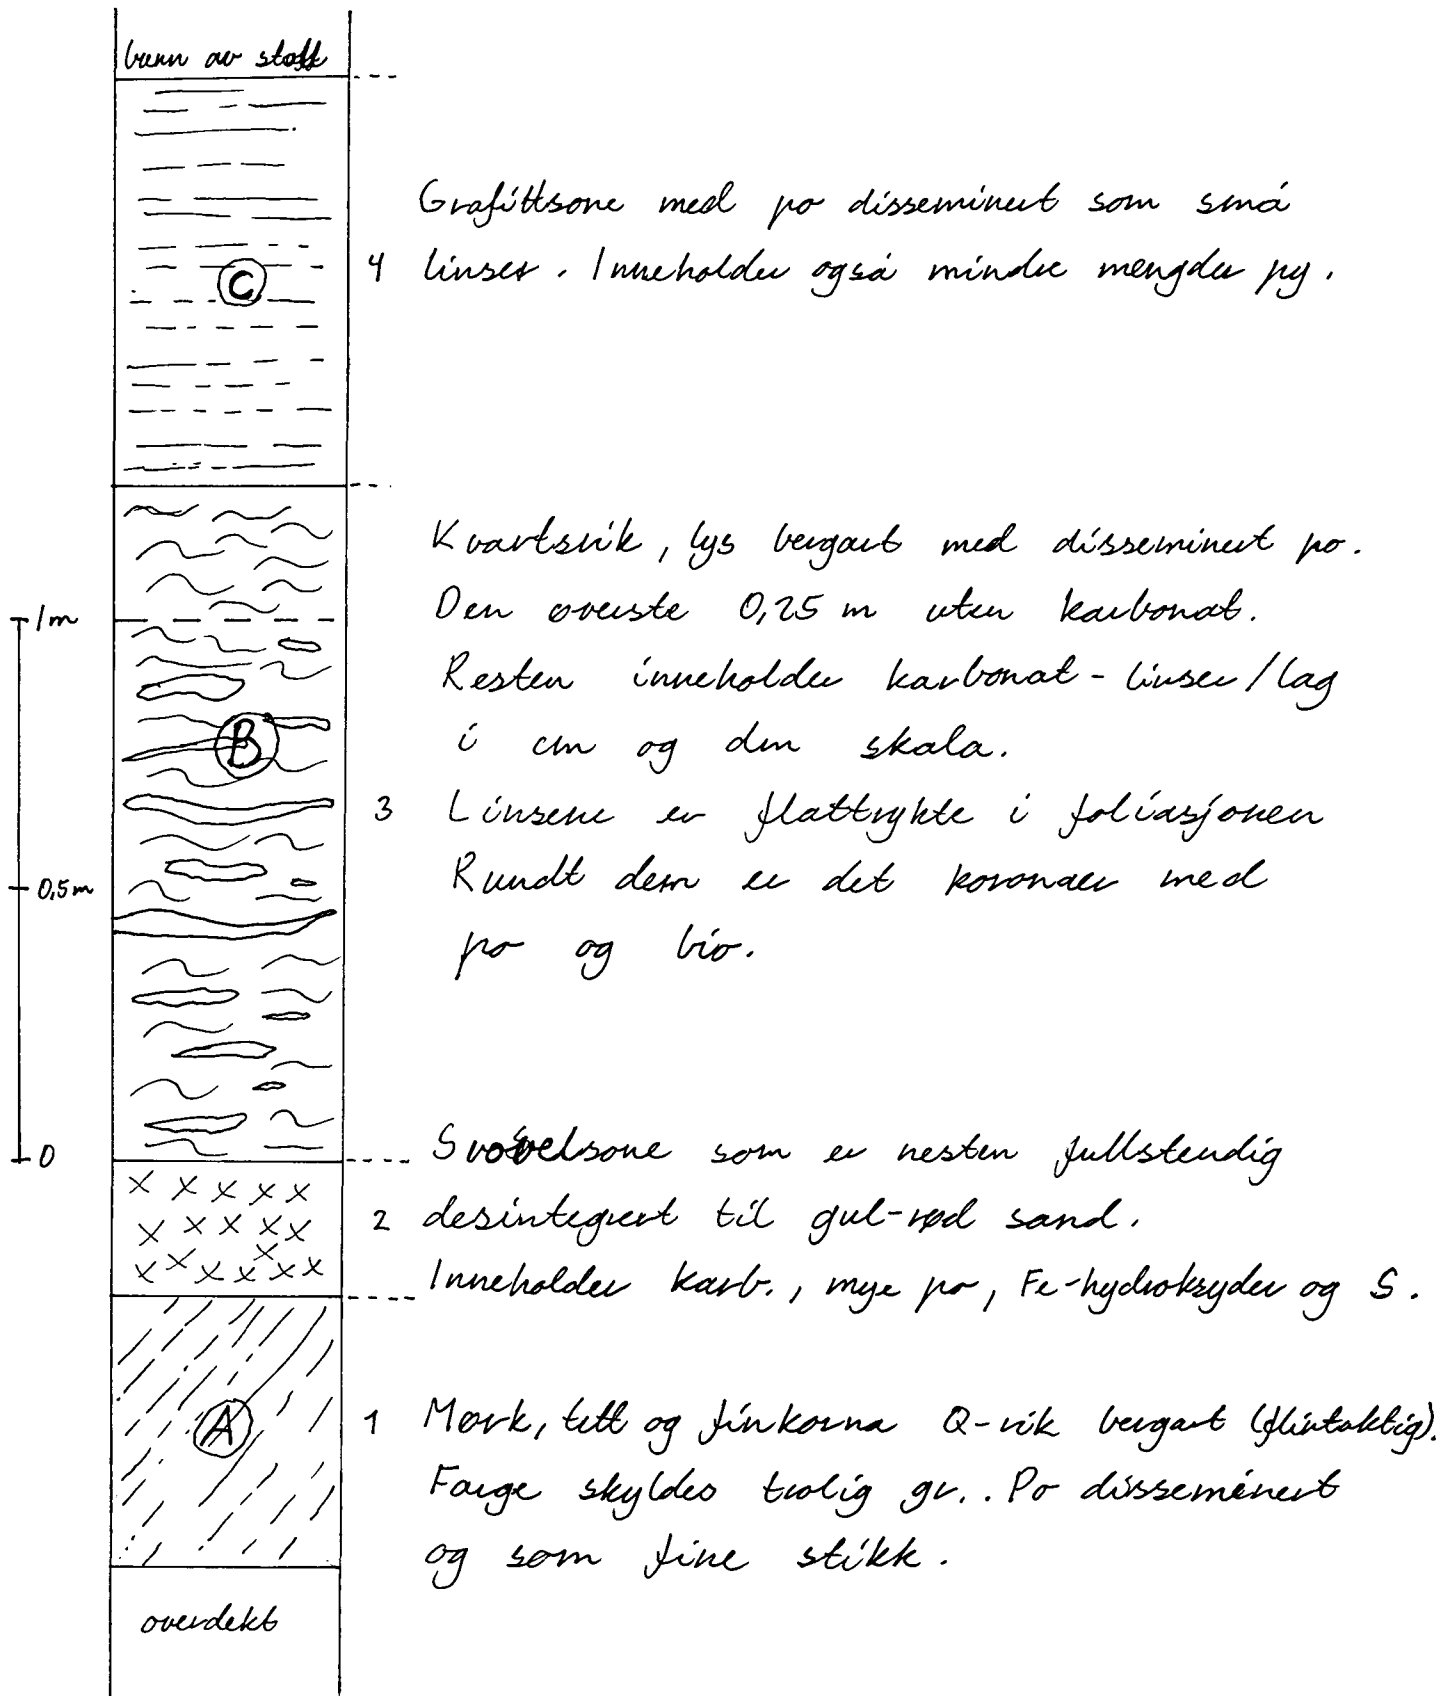 bunn av stoff
Grafittsone med po disseminert som små
4 linser. Inneholder også mindre mengder py.
C
Kvartsrik, lys bergart med disseminert po.
1m
Den øverste 0,25 m uten karbonat.
Resten inneholder karbonat-linser/lag
i cm og dm skala.
B
3 Linsene er flattrykte i foliasjonen
0,5m
Rundt dem er det koronaer med
po og bio.
0
Svovelsone som er nesten fullstendig
2 desintegrert til gul-rød sand.
Inneholder karb., mye po, Fe-hydroksyder og S.
A
1 Mørk, tett og finkorna Q-rik bergart (flintaktig).
Farge skyldes trolig gr.. Po disseminert
og som fine stikk.
overdekt